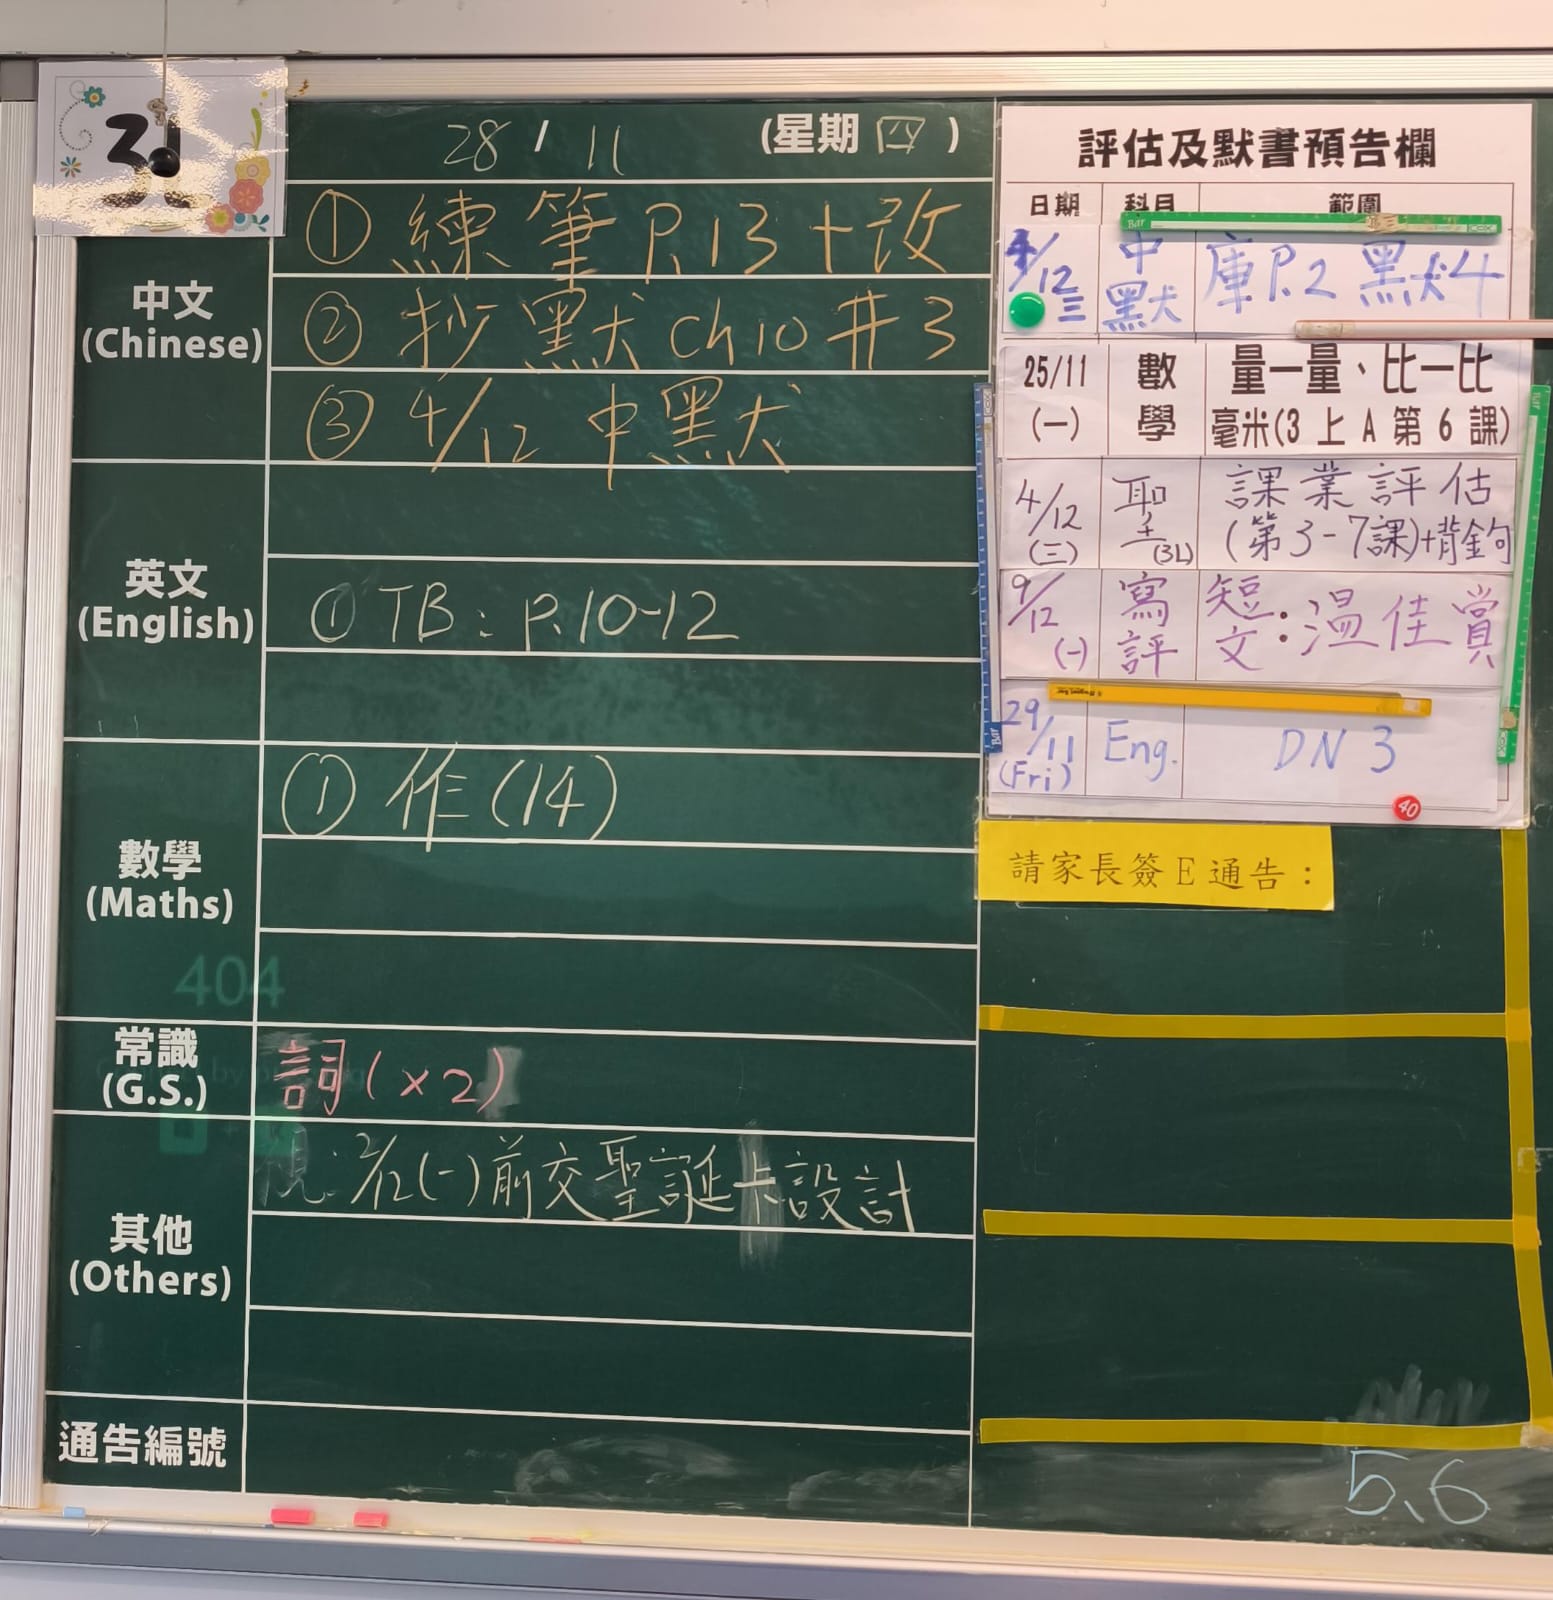 28 / 11 (星期 四 )
中文
(Chinese)
① 練筆 P.13 + 改
② 抄默 Ch10 #3
③ 4/12 中默
英文
(English)
① TB: P.10-12
數學
(Maths)
① 作(14)
404
常識
(G.S.)
詞(×2)
其他
(Others)
視: 2/12(一)前交聖誕卡設計
通告編號
評估及默書預告欄
日期 科目 範圍
4/12 三 中默 庫P.2 默4
25/11 (一) 數學 量一量、比一比
毫米(3 上 A 第 6 課)
4/12 (三) 聖(3L) 課業評估
(第3-7課)+背金句
9/12 (一) 寫評 短文:溫佳賞
29/11 (Fri) Eng. DN 3
40
請家長簽E通告:
5、6